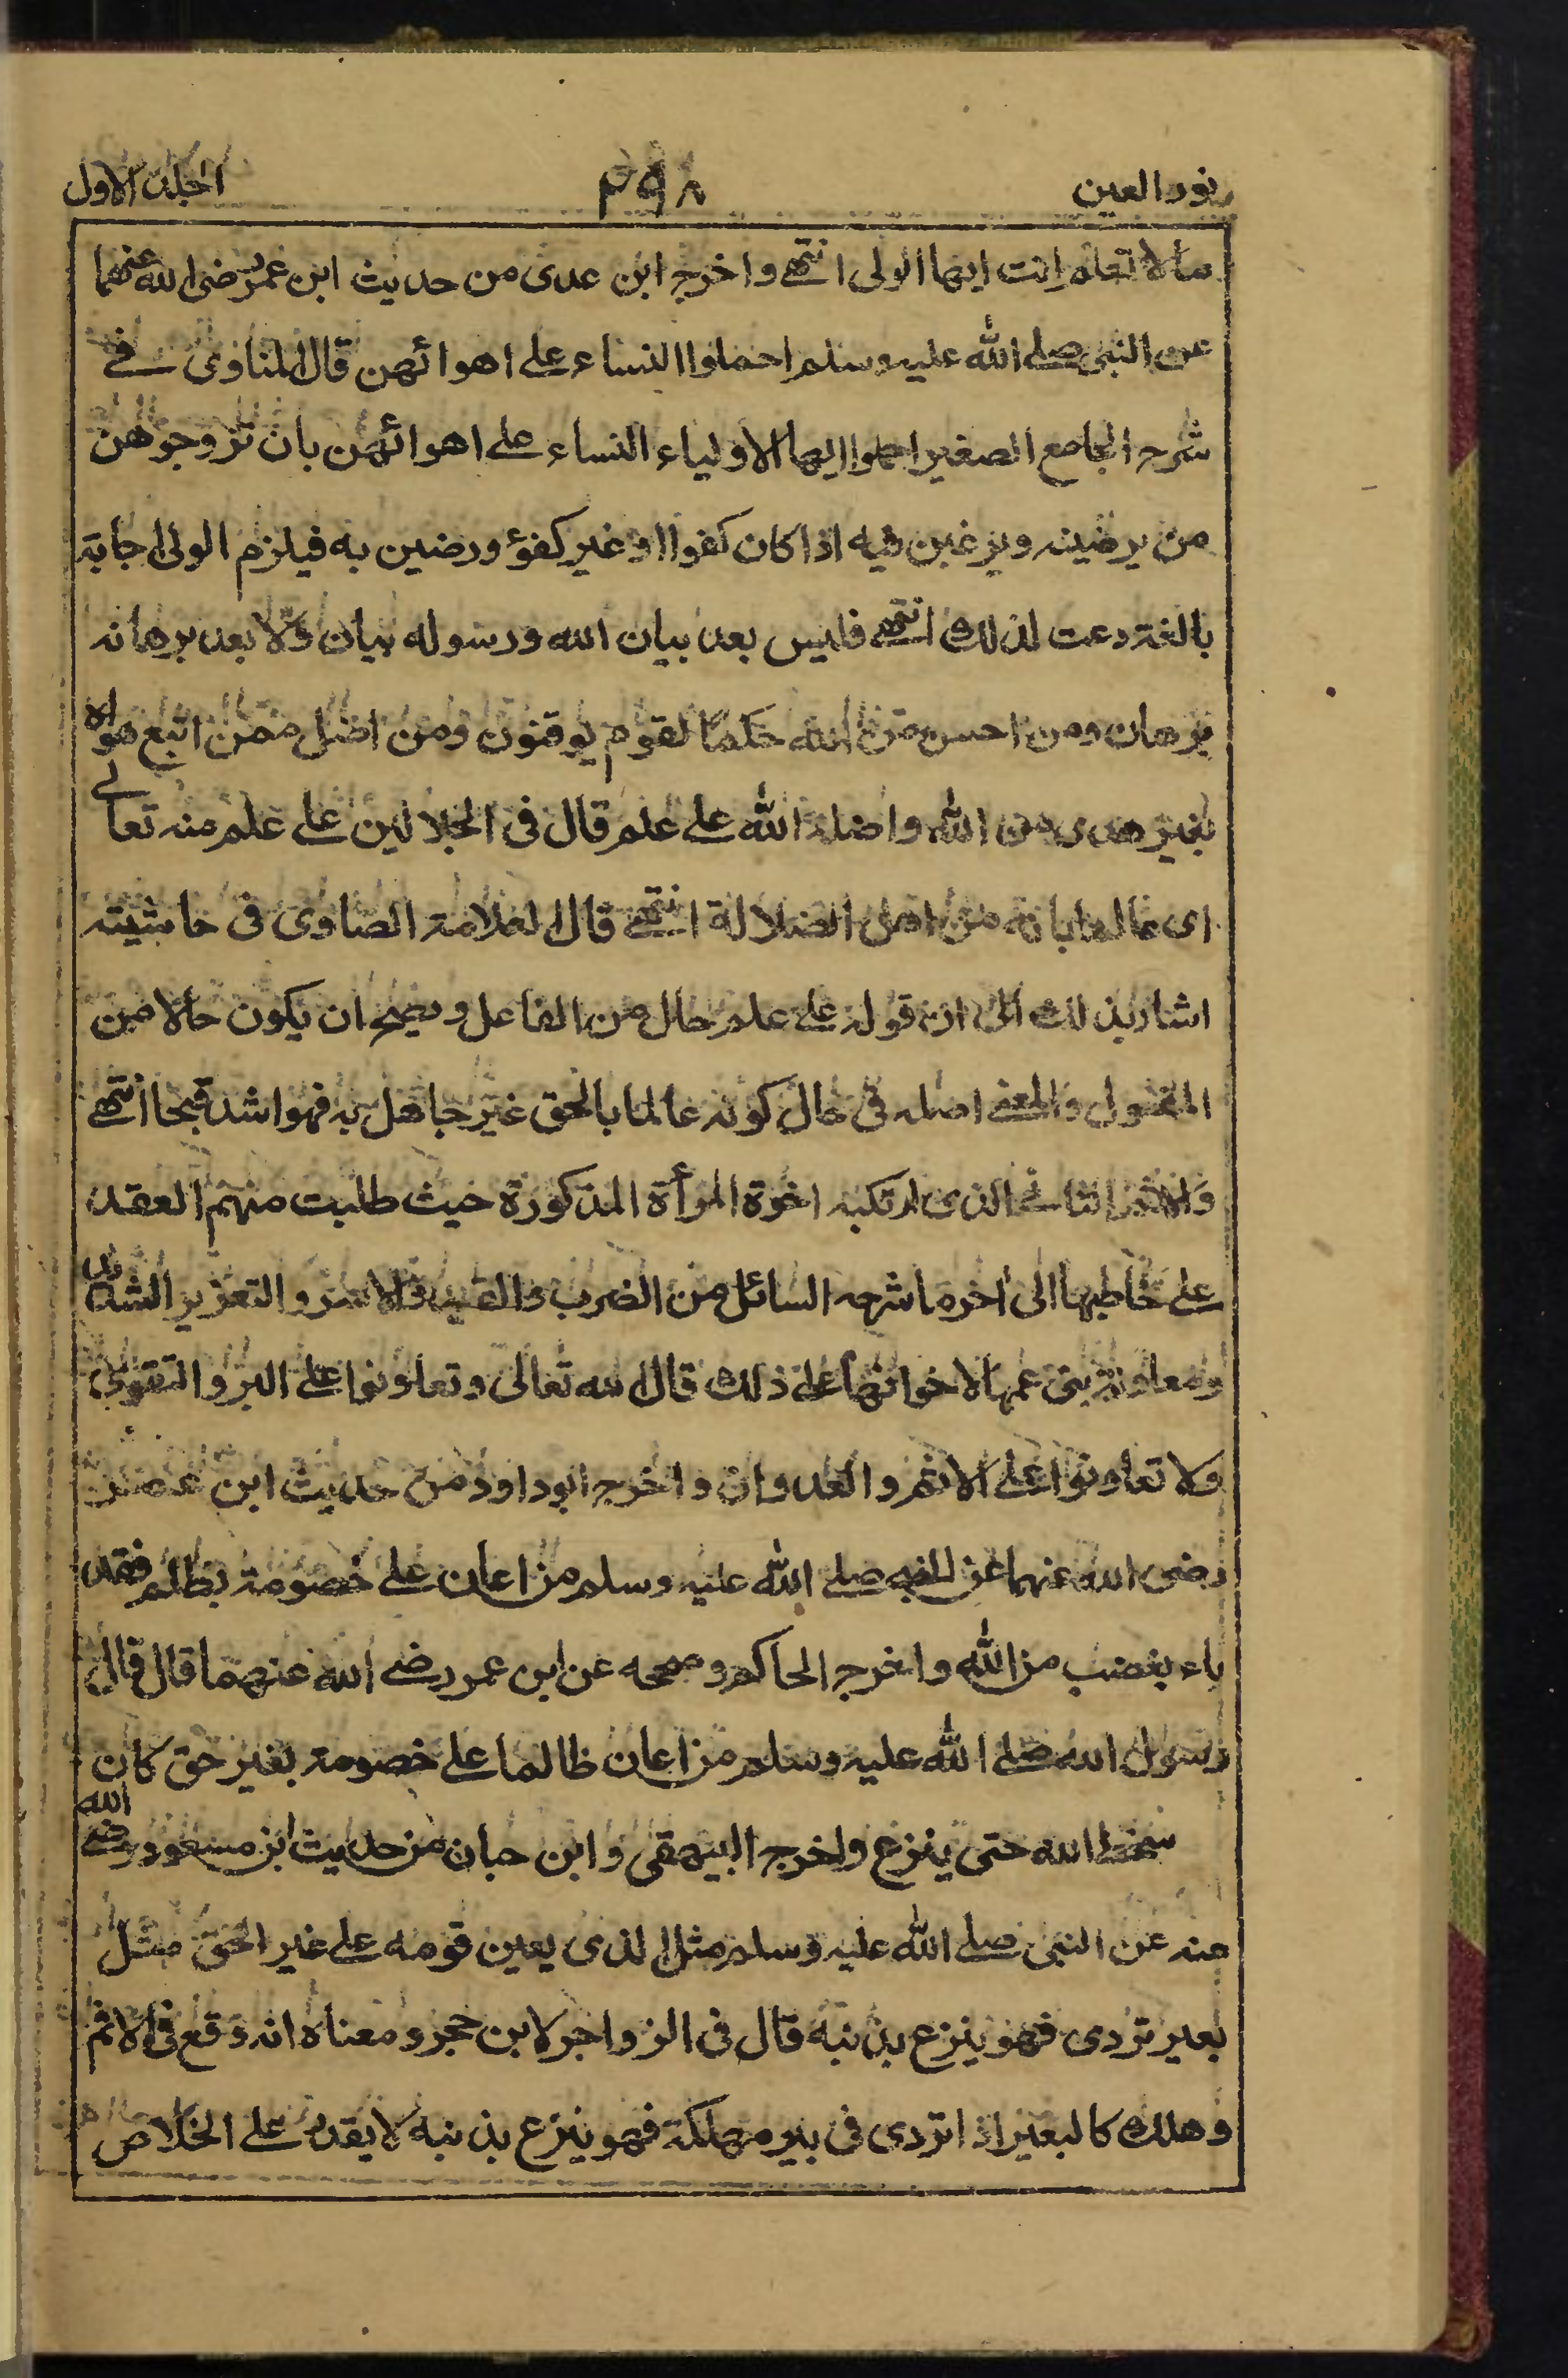 نور العين ٢٩٨ الجلد الاول
مالا تعلم انت ايها الولى انتهى واخرج ابن عدى من حديث ابن عمر رضى الله عنهما
عن النبى صلى الله عليه وسلم احملوا النساء على اهوائهن قال المناوى فى
شرح الجامع الصغير احملوا ايها الاولياء النساء على اهوائهن بان تزوجوهن
من يرضينه ويرغبن فيه اذا كان كفوا او غير كفؤ ورضين به فيلزم الولى اجابة
بالغة دعت لذلك انتهى فليس بعد بيان الله ورسوله بيان ولا بعد برهانه
برهان ومن احسن من الله حكمًا لقوم يوقنون ومن اضل ممن اتبع هواه
بغير هدى من الله واضله الله على علم قال فى الجلالين على علم منه تعالى
اى عالما بانه من اهل الضلالة انتهى قال العلامة الصاوى فى حاشيته
اشار بذلك الى ان قوله على علم حال من الفاعل ويصح ان يكون حالا من
المفعول والمعنى اضله فى حال كونه عالما بالحق غير جاهل به فهو اشد قبحا انتهى
والاثم الثانى الذى ارتكبه اخوة المرأة المذكورة حيث طلبت منهم العقد
على خاطبها الى اخر ما شرحه السائل من الضرب والقيد والاسر والتعزير الشديد
ومعاونة بنى عمها لاخوانها على ذلك قال الله تعالى وتعاونوا على البر والتقوى
ولا تعاونوا على الاثم والعدوان واخرج ابوداود من حديث ابن عمر
رضى الله عنهما عن النبى صلى الله عليه وسلم من اعان على خصومة بظلم فقد
باء بغضب من الله واخرج الحاكم وصححه عن ابن عمر رضى الله عنهما قال قال
رسول الله صلى الله عليه وسلم من اعان ظالما على خصومة بغير حق كان
سخط الله حتى ينزع واخرج البيهقى وابن حبان من حديث ابن مسعود رضى الله
عنه عن النبى صلى الله عليه وسلم مثل الذى يعين قومه على غير الحق مثل
بعير تردى فهو ينزع بذنبه قال فى الزواجر لابن حجر ومعناه انه وقع فى الاثم
وهلك كالبعير اذا تردى فى بير مهلكة فهو ينزع بذنبه لا يقدر على الخلاص